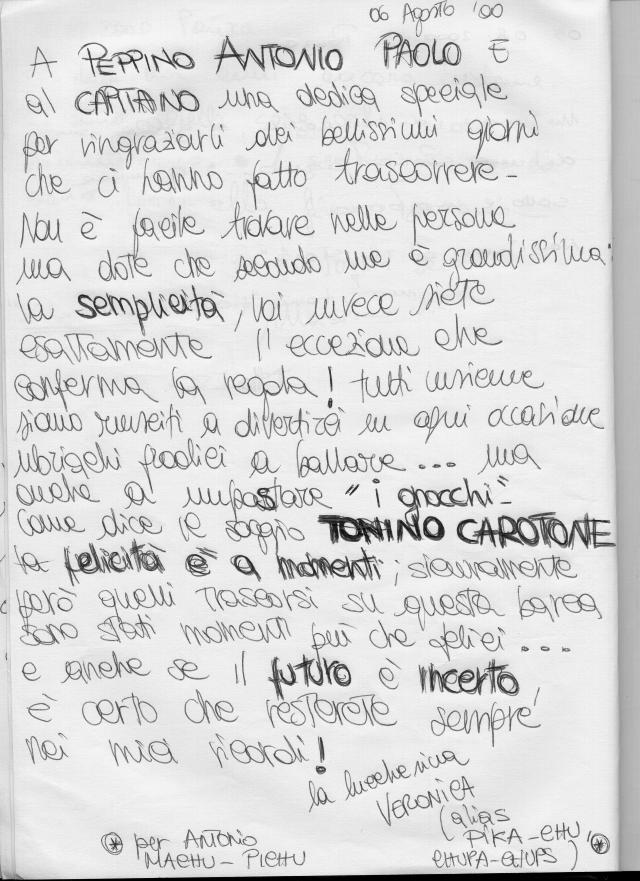 06 Agosto '00
A PEPPINO ANTONIO PAOLO E
al CAPITANO una dedica speciale
per ringraziarli dei bellissimi giorni
che ci hanno fatto trascorrere -
Non è facile trovare nelle persone
una dote che secondo me è grandissima:
la semplicità, voi invece siete
esattamente l'eccezione che
conferma la regola! tutti insieme
siamo riusciti a divertirci in ogni occasione
ubriachi fradici a ballare ... ma
anche a impastare "i gnocchi"
Come dice il saggio TONINO CAROTONE
la felicità è a momenti; sicuramente
però quelli trascorsi su questa barca
sono stati momenti più che felici ....
e anche se il futuro è incerto,
è certo che resterete sempre
nei miei ricordi!
la lucchesina
VERONICA
(alias
PIKA-CHU,
CHUPA-CHUPS)
* per ANTONIO
MACHU-PICHU